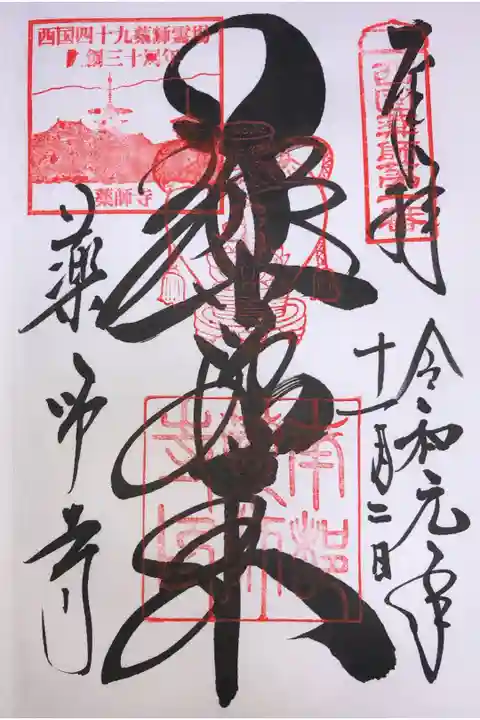 奉拝
西国薬師第一番
令和元年
十一月二日
薬師如来
西国四十九薬師霊場
創三十周年
薬師寺
薬師寺